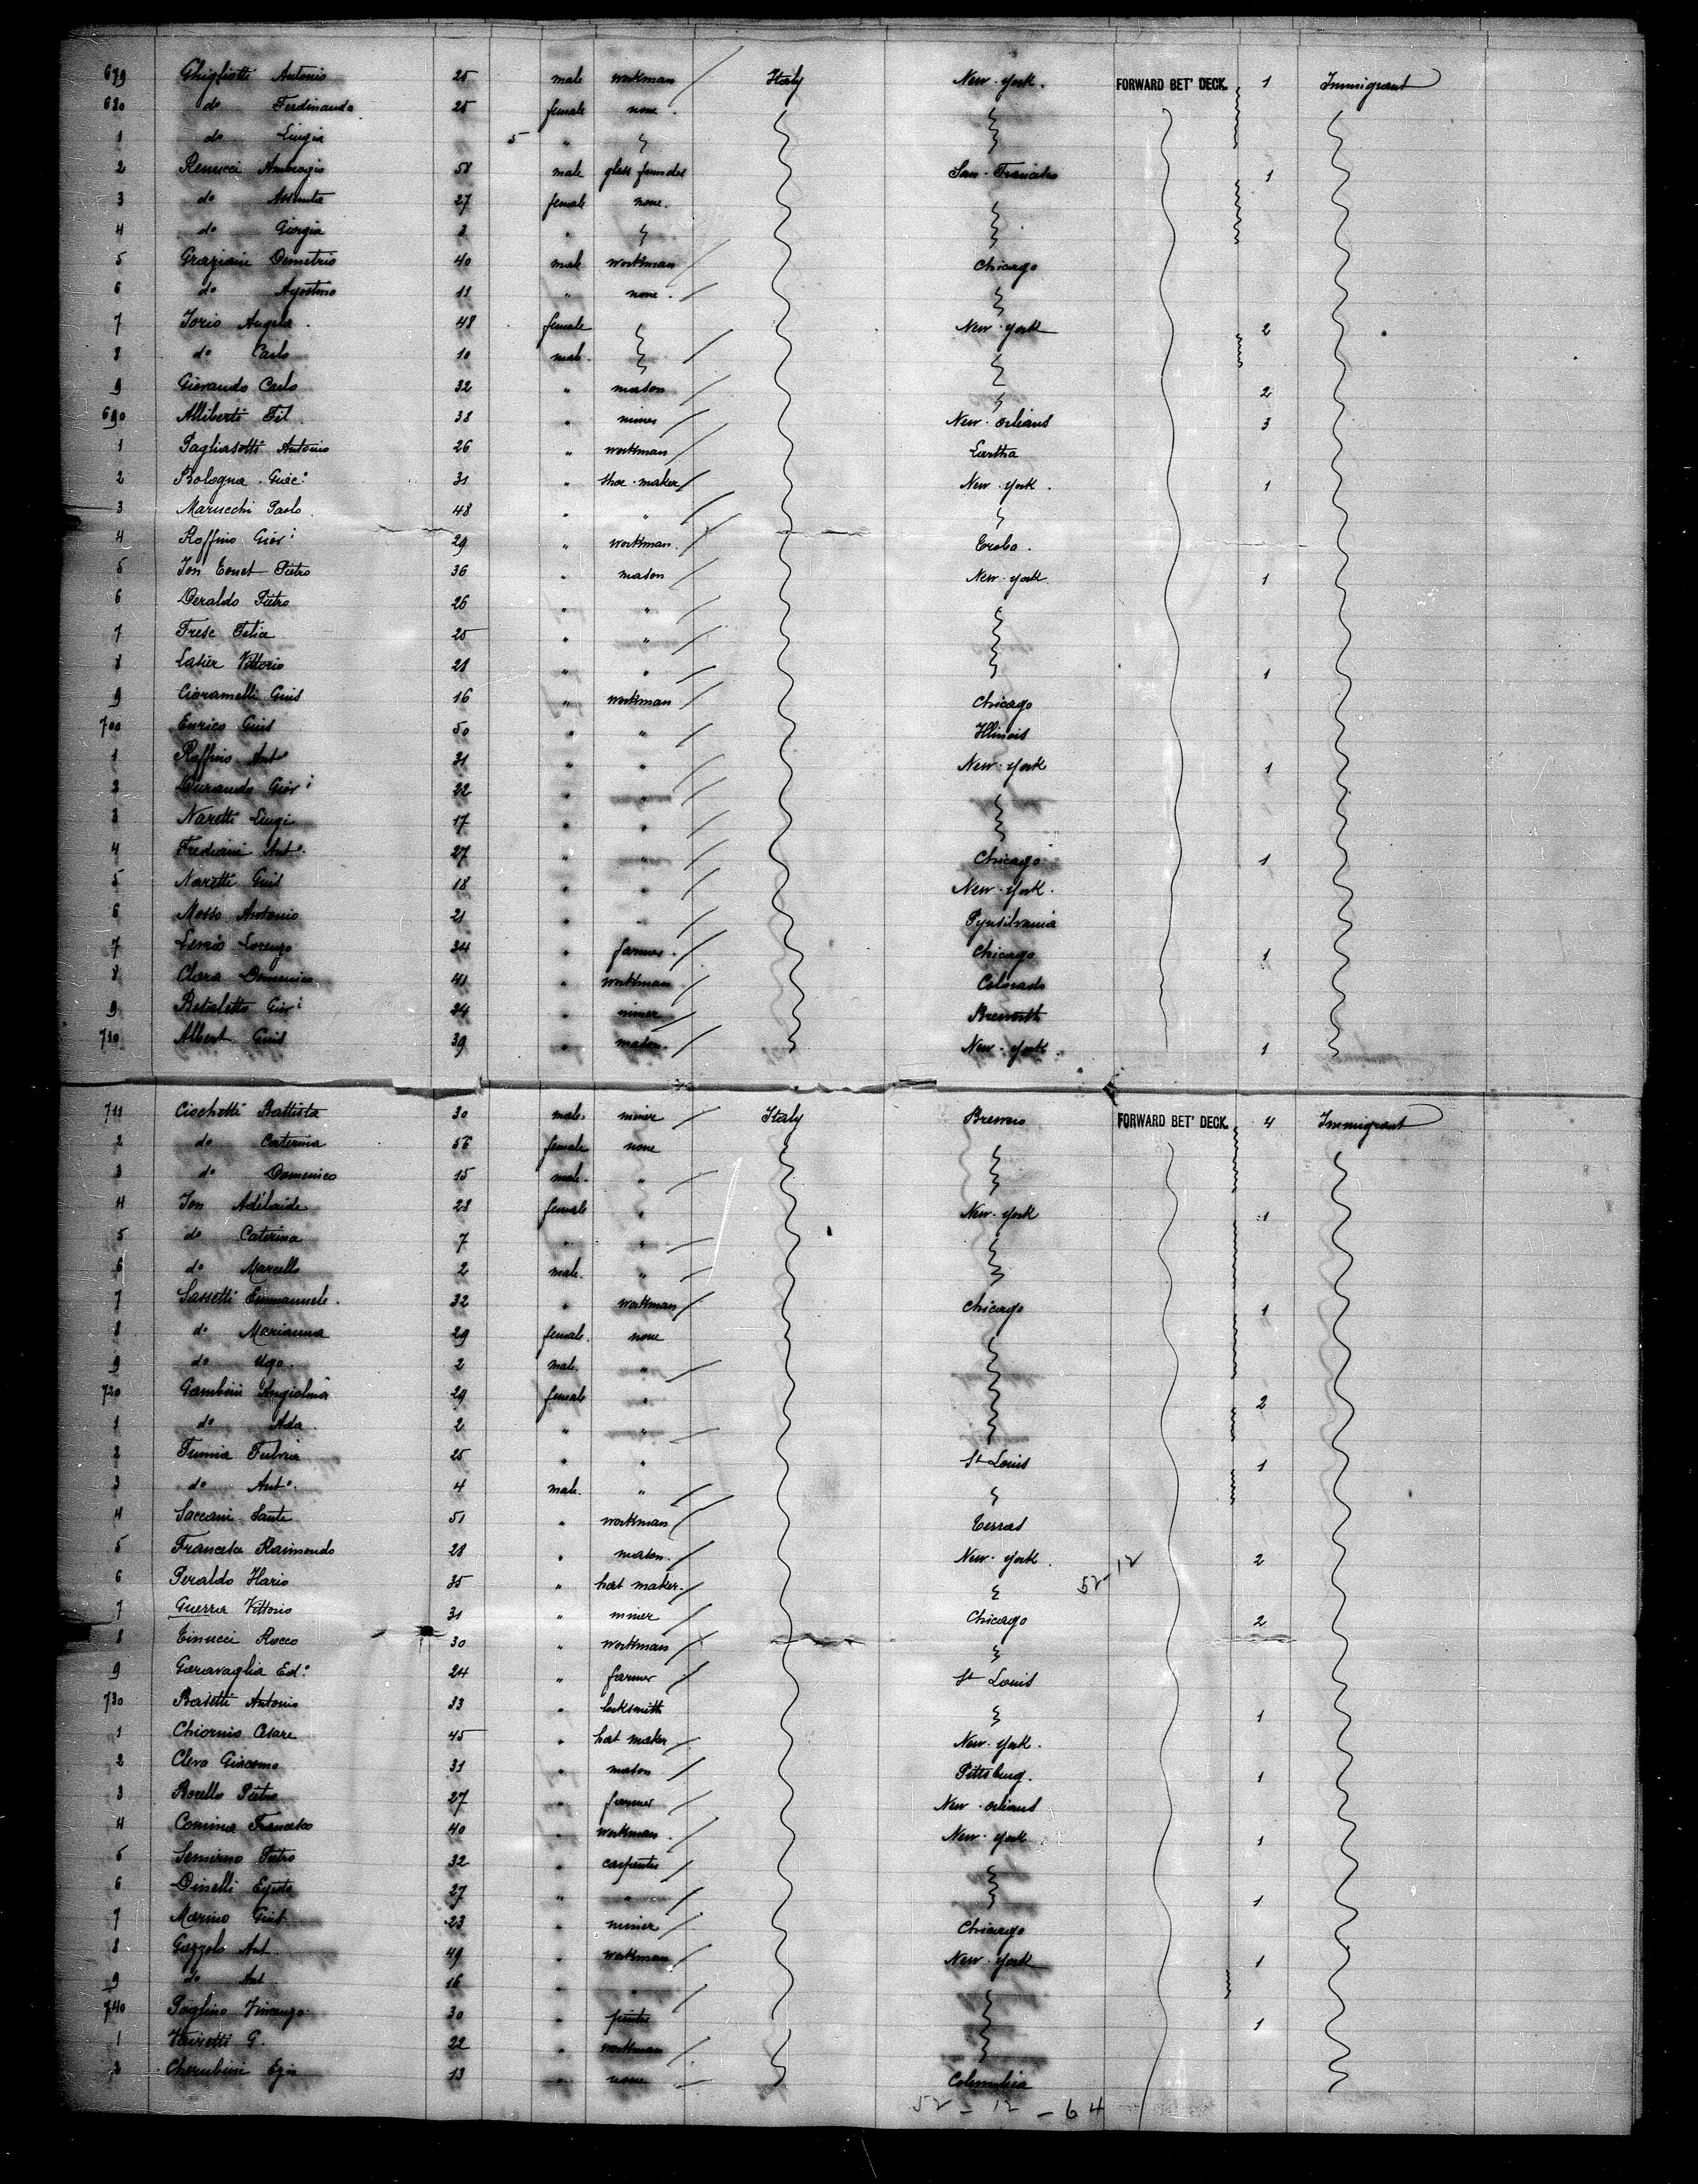 679 Ghigliotti Antonio 25 male workman / Italy New-york. FORWARD BET' DECK. 1 Immigrant
680 do Ferdinanda 25 female none.
1 do Luigia 5 "
2 Renucci Ambrogio 58 male glass founder San-Francisko 1
3 do Assunta 27 female none.
4 do Giorgia 2 "
5 Graziani Demetrio 40 male workman / Chicago
6 do Agostino 11 " none. /
7 Iorio Angela. 48 female New-york 2
8 do Carlo 10 male. /
9 Giorando Carlo 32 " mason / 2
690 Alliberti Fil 38 " miner / New-orleans 3
1 Pagliasotti Antonio 26 " workman /
2 Bologna Giac.o 31 " shoe-maker / New-york. 1
3 Marucchi Paolo. 48 " " /
4 Roffino Giov.i 29 " workman. /
5 Ion Eonet Pietro 36 " mason / New-york. 1
6 Deraldo Pietro 26 " " /
7 Frese Felia 25 " " /
8 Lasier Vittorio 21 " " / 1
9 Cioramelli Guis 16 " workman / Chicago
700 Enrico Guis 50 " " / Illinois
1 Roffino Ant.o 31 " " / New-york 1
2 Durando Giov.i 22 " " /
3 Naretti Luigi 17 " " /
4 Frediani Ant.o 27 " " / Chicago 1
5 Naretti Guis 18 " " / New-york.
6 Mosso Antonio 21 " " / Pynsilvania
7 Lorenzo 34 " farmer. / Chicago 1
8 Clara Domenico 41 " workman / Colorado
9 Giov.i 34 " miner /
710 Albert Guis 39 " mason. / New-york. 1
711 Ciochetti Battista 30 male. miner / Italy FORWARD BET' DECK. 4 Immigrant
2 do Caterina 56 female none
3 do Domenico 15 male. " /
4 Ion Adélaide 28 female " New-york 1
5 do Caterina 7 " " /
6 do Marcello 2 male. " /
7 Sassetti Emmanuele. 32 " workman / Chicago 1
8 do Marianna 29 female. none
9 do Ugo. 2 male. " /
720 Gambini Angiolina 29 female " 2
1 do Ada 2 " " /
2 Fumia Fulvia 25 " " St Louis 1
3 do Ant.o 4 male. " /
4 Saccani Sante 51 " workman /
5 Francesca Raimondo 28 " mason. / New-york. 52-12 2
6 Peraldo Ilario 35 " hat maker. /
7 Guerra Vittorio 31 " miner / Chicago 2
8 Einucci Rocco 30 " workman /
9 Garavaglia Ed.o 24 " farmer / St Louis
730 Basetti Antonio 33 " locksmith 1
1 Chiornio Cesare 45 " hat maker / New-york.
2 Clero Giacomo 31 " mason / Pittsburg. 1
3 Borello Pietro 27 " farmer / New-orleans
4 Comina Francesco 40 " workman. / New-york 1
5 Pietro 32 " carpenter /
6 Dinelli Egisto 27 " " / 1
7 Marino Guis 23 " miner / Chicago
8 Gazzolo Ant 49 " workman / New-york 1
9 do Ant 16 " " /
740 Paglino Vincenzo 30 " 1
1 G. 22 " workman /
2 Cherubini 13 " none / Columbia
52-12-64